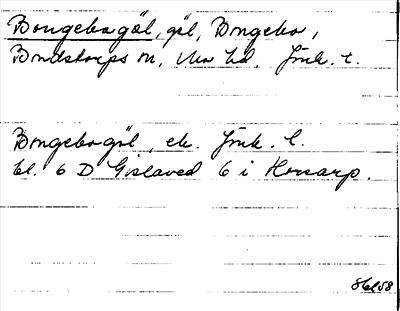 Bongebogöl, göl, Bongebo,
Bondstorps sn, Mo hd, Jönk. l.
Bongebogöl, ek. Jönk. l.
bl. 6 D Gislaved 6 i Horsarp.